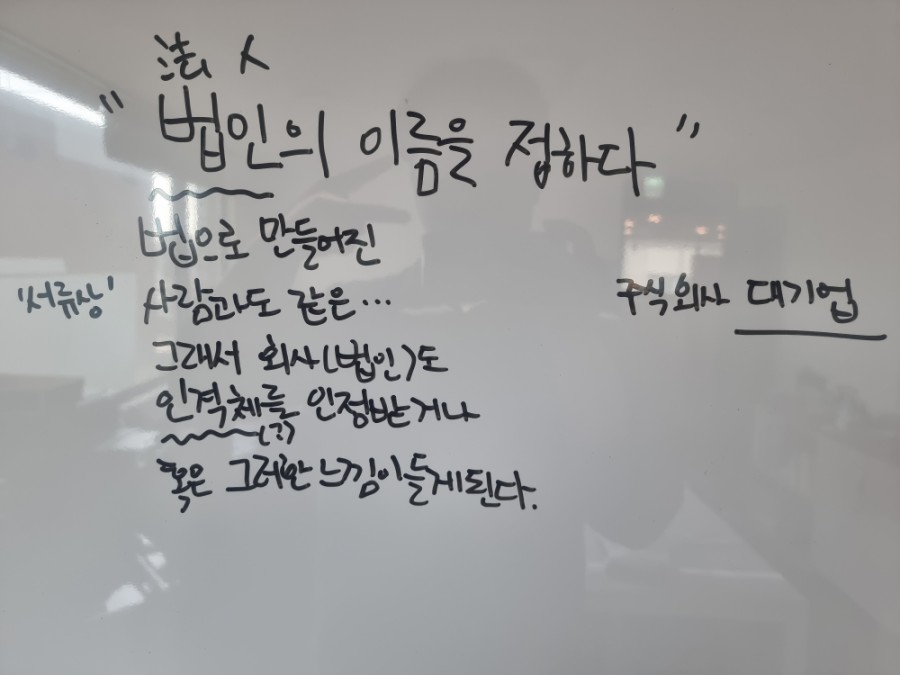 法人
" 법인의 이름을 정하다 "
법으로 만들어진
'서류상' 사람과도 같은...
주식회사 대기업
그래서 회사(법인)도
인격체를 인정받거나
(?)
혹은 그러한 느낌이 들게된다.